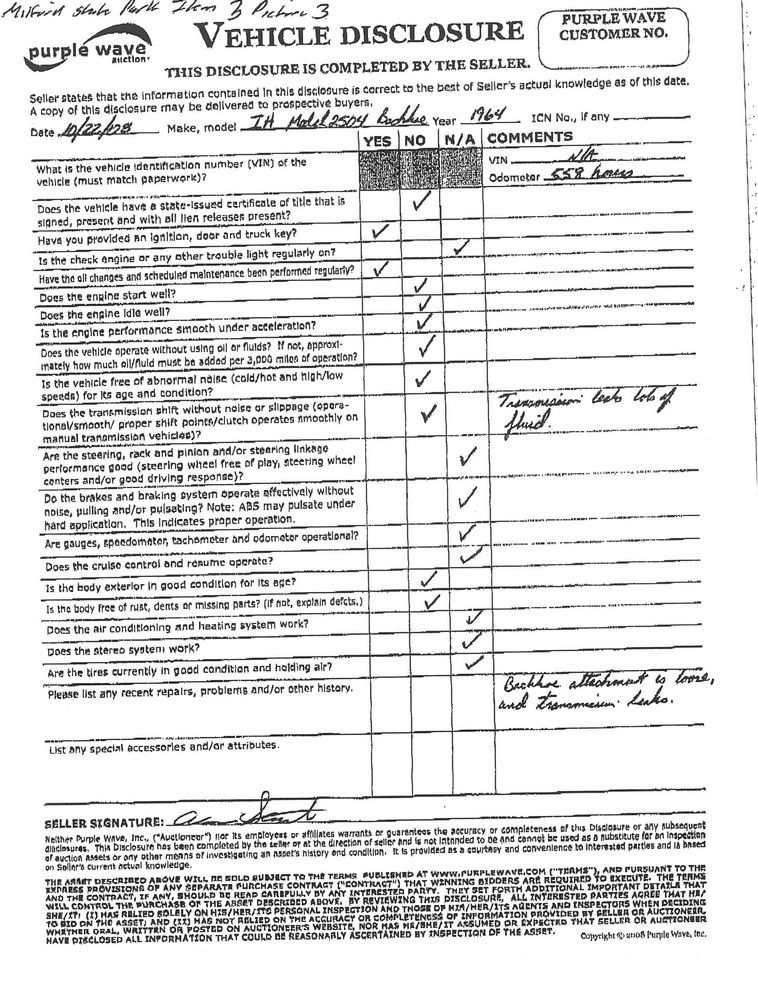 Milford State Park Item 3 Picture 3
purple wave
auction
VEHICLE DISCLOSURE
PURPLE WAVE
CUSTOMER NO.
THIS DISCLOSURE IS COMPLETED BY THE SELLER.
Seller states that the information contained in this disclosure is correct to the best of Seller's actual knowledge as of this date.
A copy of this disclosure may be delivered to prospective buyers.
Date 10/22/08 Make, model IH Model 2504 Backhoe Year 1964 ICN No., if any
YES NO N/A COMMENTS
What is the vehicle identification number (VIN) of the
vehicle (must match paperwork)?
VIN N/A
Odometer 558 hours
Does the vehicle have a state-issued certificate of title that is
signed, present and with all lien releases present? ✓
Have you provided an ignition, door and truck key? ✓
Is the check engine or any other trouble light regularly on? ✓
Have the oil changes and scheduled maintenance been performed regularly? ✓
Does the engine start well? ✓
Does the engine idle well? ✓
Is the engine performance smooth under acceleration? ✓
Does the vehicle operate without using oil or fluids? If not, approxi-
mately how much oil/fluid must be added per 3,000 miles of operation? ✓
Is the vehicle free of abnormal noise (cold/hot and high/low
speeds) for its age and condition? ✓
Does the transmission shift without noise or slippage (opera-
tional/smooth/ proper shift points/clutch operates smoothly on
manual transmission vehicles)? ✓
Transmission leaks lots of
fluid.
Are the steering, rack and pinion and/or steering linkage
performance good (steering wheel free of play, steering wheel
centers and/or good driving response)? ✓
Do the brakes and braking system operate effectively without
noise, pulling and/or pulsating? Note: ABS may pulsate under
hard application. This indicates proper operation. ✓
Are gauges, speedometer, tachometer and odometer operational? ✓
Does the cruise control and resume operate? ✓
Is the body exterior in good condition for its age? ✓
Is the body free of rust, dents or missing parts? (if not, explain defcts.) ✓
Does the air conditioning and heating system work? ✓
Does the stereo system work? ✓
Are the tires currently in good condition and holding air? ✓
Please list any recent repairs, problems and/or other history.
Backhoe attachment is loose,
and transmission leaks.
List any special accessories and/or attributes.
SELLER SIGNATURE:
Neither Purple Wave, Inc., ("Auctioneer") nor its employees or affiliates warrants or guarantees the accuracy or completeness of this Disclosure or any subsequent
disclosures. This Disclosure has been completed by the seller or at the direction of seller and is not intended to be and cannot be used as a substitute for an inspection
of auction assets or any other means of investigating an asset's history and condition. It is provided as a courtesy and convenience to interested parties and is based
on Seller's current actual knowledge.
THE ASSET DESCRIBED ABOVE WILL BE SOLD SUBJECT TO THE TERMS PUBLISHED AT WWW.PURPLEWAVE.COM ("TERMS"), AND PURSUANT TO THE
EXPRESS PROVISIONS OF ANY SEPARATE PURCHASE CONTRACT ("CONTRACT") THAT WINNING BIDDERS ARE REQUIRED TO EXECUTE. THE TERMS
AND THE CONTRACT, IF ANY, SHOULD BE READ CAREFULLY BY ANY INTERESTED PARTY. THEY SET FORTH ADDITIONAL IMPORTANT DETAILS THAT
WILL CONTROL THE PURCHASE OF THE ASSET DESCRIBED ABOVE. BY REVIEWING THIS DISCLOSURE, ALL INTERESTED PARTIES AGREE THAT HE/
SHE/IT: (I) HAS RELIED SOLELY ON HIS/HER/ITS PERSONAL INSPECTION AND THOSE OF HIS/HER/ITS AGENTS AND INSPECTORS WHEN DECIDING
TO BID ON THE ASSET, AND (II) HAS NOT RELIED ON THE ACCURACY OR COMPLETENESS OF INFORMATION PROVIDED BY SELLER OR AUCTIONEER,
WHETHER ORAL, WRITTEN OR POSTED ON AUCTIONEER'S WEBSITE, NOR HAS HE/SHE/IT ASSUMED OR EXPECTED THAT SELLER OR AUCTIONEER
HAVE DISCLOSED ALL INFORMATION THAT COULD BE REASONABLY ASCERTAINED BY INSPECTION OF THE ASSET.
Copyright © 2008 Purple Wave, Inc.